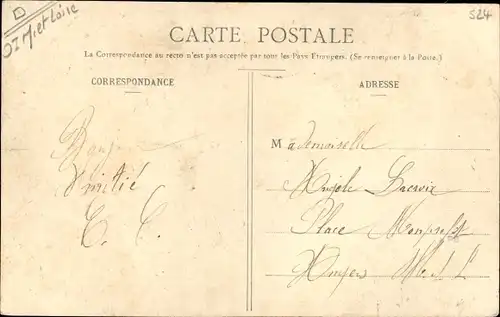 D
M. et Loire
524
CARTE POSTALE
La Correspondance au recto n'est pas acceptée par tous les Pays Etrangers. (Se renseigner à la Poste.)
CORRESPONDANCE
ADRESSE
Amitié
Mademoiselle
Lacroix
Place
Angers M et L